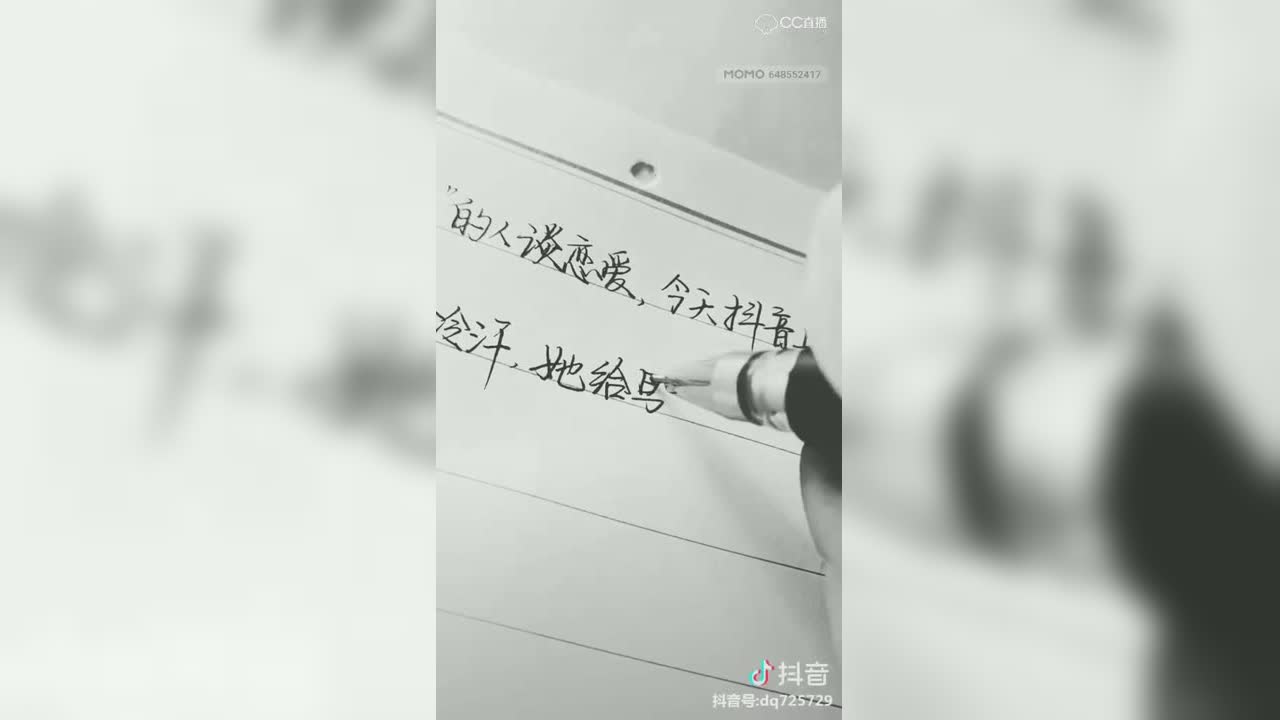 CC直播
MOMO 648552417
"的人谈恋爱,今天抖音
冷汗,她给
抖音
抖音号:dq725729